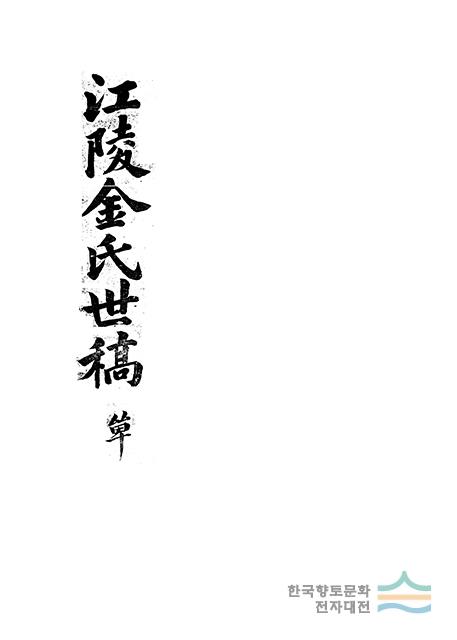 江陵金氏世稿
單
한국향토문화
전자대전